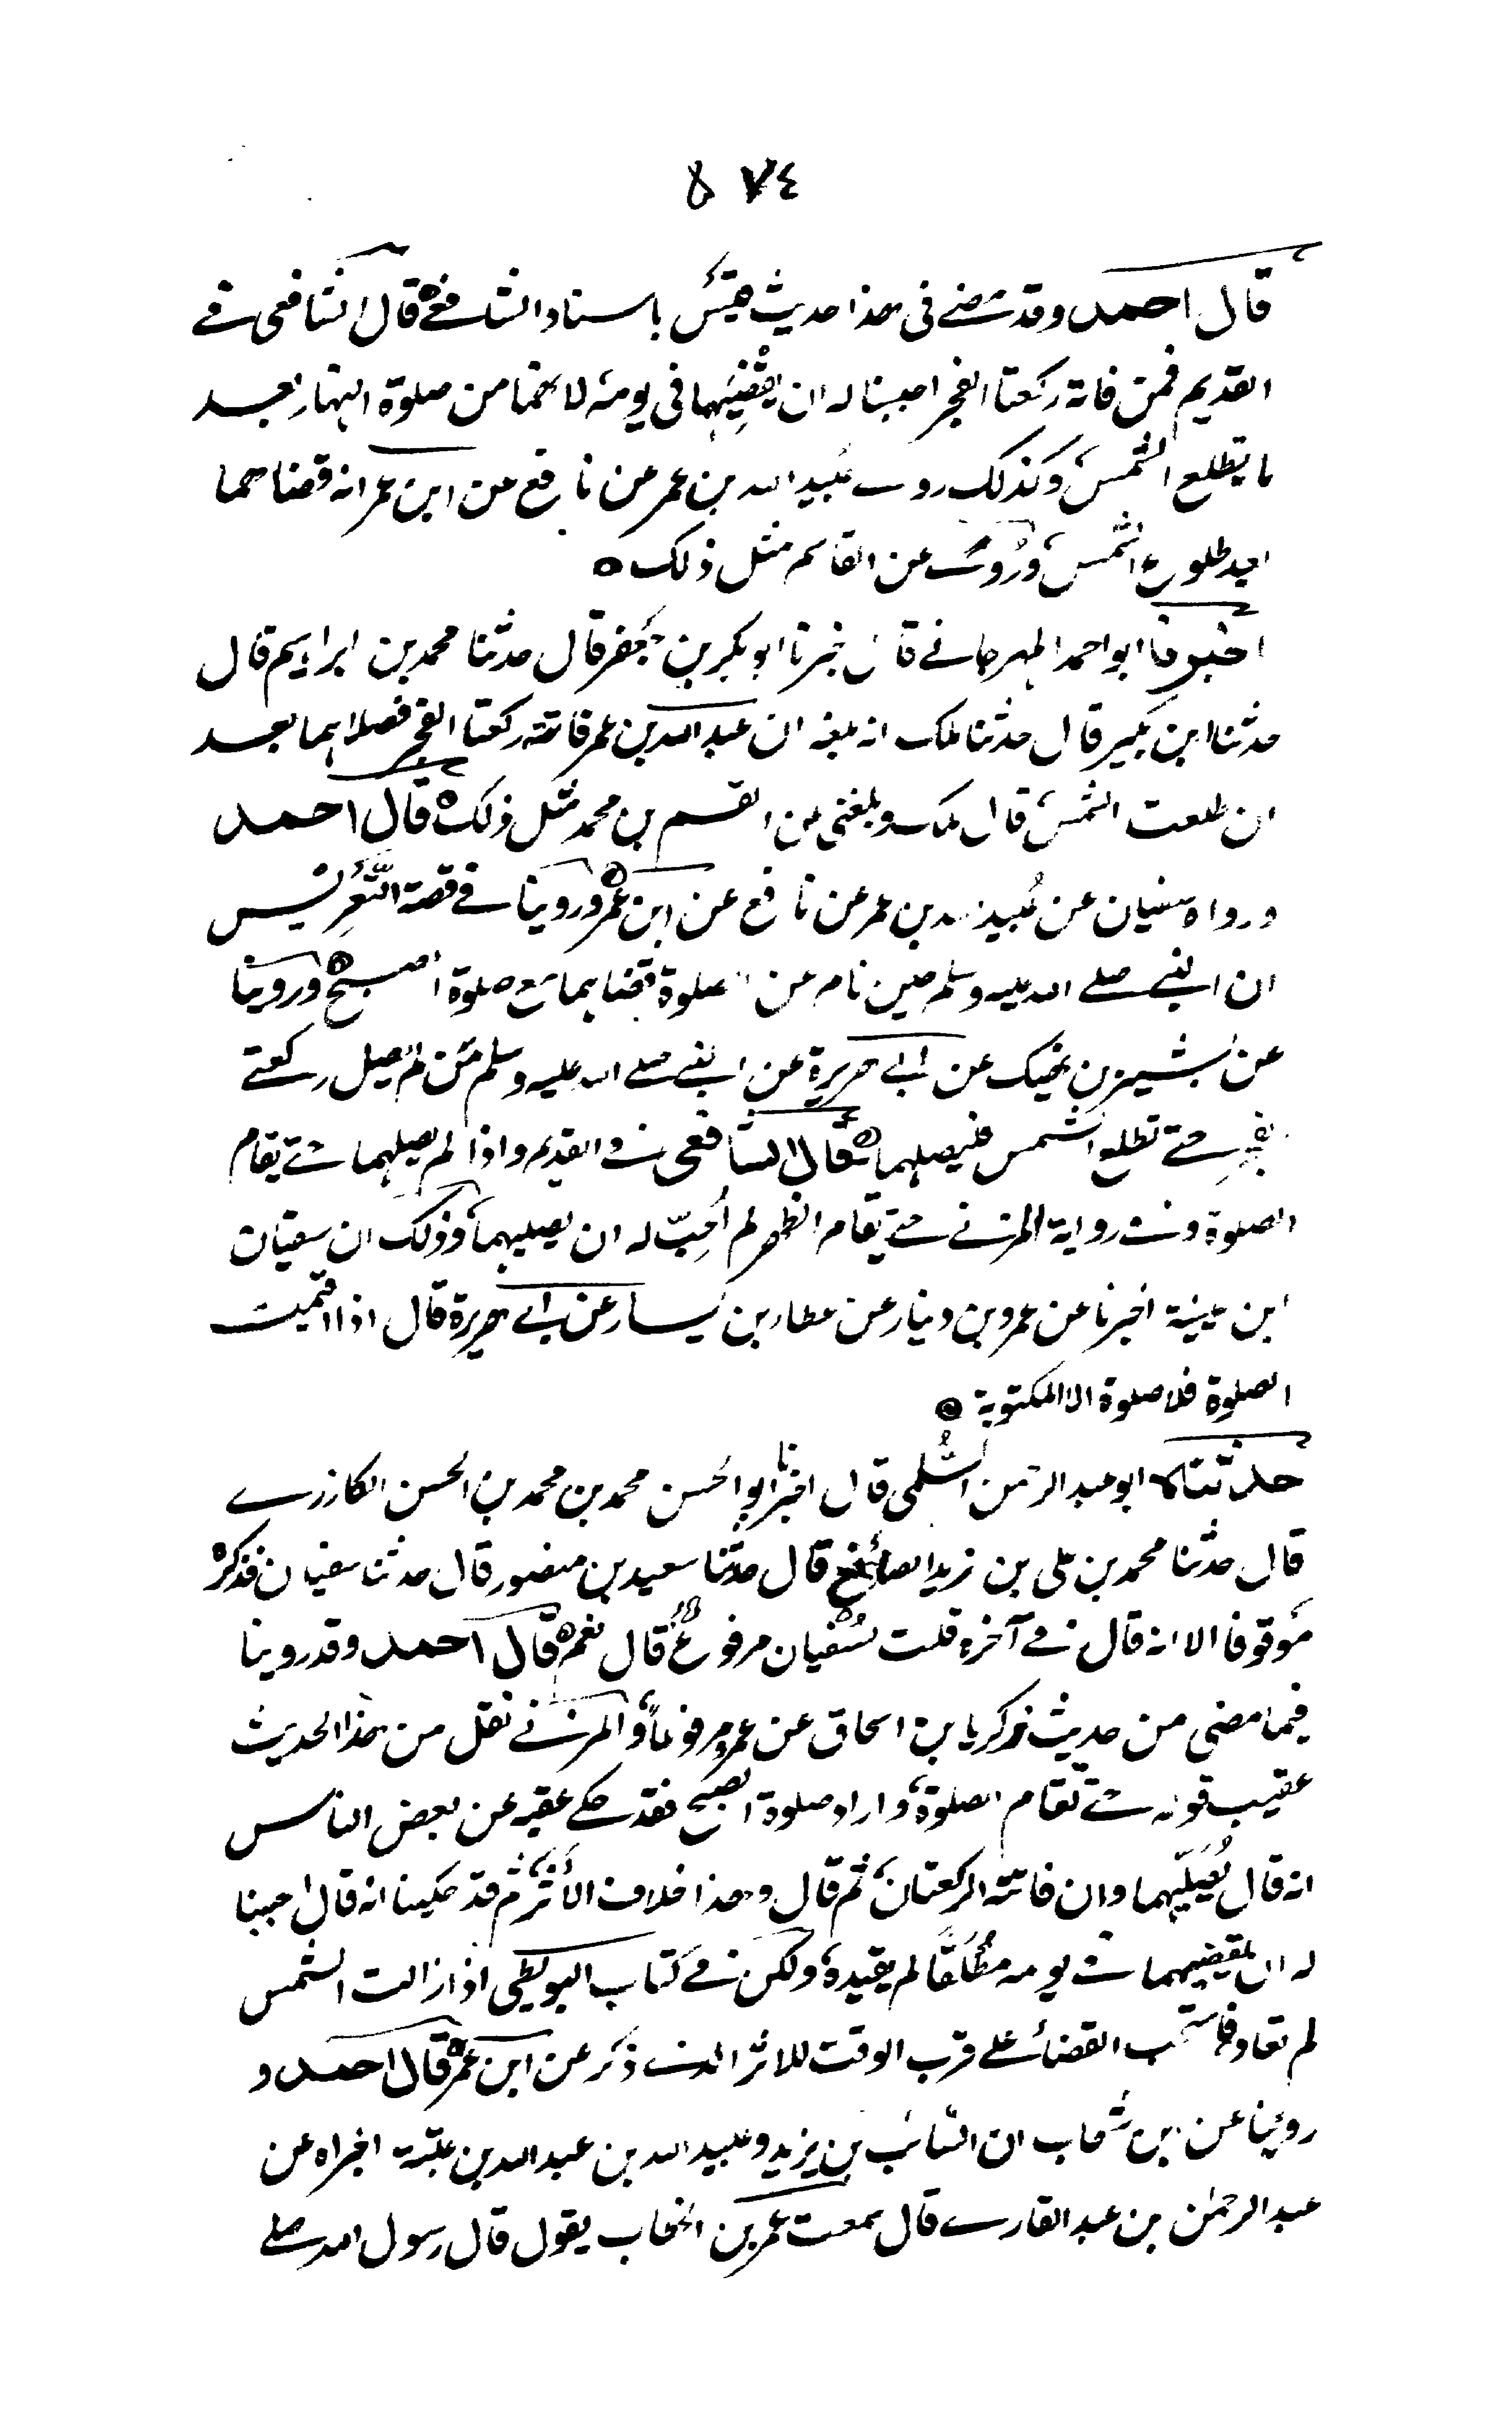 ٥٧٤
قال احمد وقد مضى فى هذا حديث قيس باسناد الشافعي قال الشافعى في
القديم فمن فاته ركعتا الفجر احببنا له ان يقضيهما فى يومه لانهما من صلوة النهار بعد
ما تطلع الشمس وكذلك روى عبيد الله بن عمر عن نافع عن ابن عمر انه قضاهما
بعد طلوع الشمس وروى عن القاسم مثل ذلك ٥
اخبرنا ابو احمد المهرجاني قال اخبرنا ابو بكر بن جعفر قال حدثنا محمد بن ابراهيم قال
حدثنا ابن بكير قال حدثنا ملك انه بلغه ان عبد الله بن عمر فاتته ركعتا الفجر فصلاهما بعد
ان طلعت الشمس قال ملك وبلغنى عن القسم بن محمد مثل ذلك ٥ قال احمد
ورواه سفيان عن عبيد الله بن عمر عن نافع عن ابن عمر ٥ وروينا في قصة التعريس
ان النبي صلى الله عليه وسلم حين نام عن الصلوة قضاهما مع صلوة الصبح ٥ وروينا
عن بشير بن نهيك عن ابي هريرة عن النبي صلى الله عليه وسلم من لم يصل ركعتي
الفجر حتى تطلع الشمس فليصلهما ٥ قال الشافعى في القديم واذا لم يصلهما حتى تقام
الصلوة وفي رواية المزني حتى تقام الظهر لم أحب له ان يصليهما وذلك ان سفيان
ابن عيينة اخبرنا عن عمرو بن دينار عن عطاء بن يسار عن ابي هريرة قال اذا اقيمت
الصلوة فلا صلوة الا المكتوبة ٥
حدثناه ابو عبد الرحمن السلمى قال اخبرنا ابو الحسن محمد بن محمد بن الحسن الكارزي
قال حدثنا محمد بن على بن زيد الصائغ قال حدثنا سعيد بن منصور قال حدثنا سفيان فذكره
موقوفا الا انه قال في آخره قلت لسفيان مرفوع قال نعم ٥ قال احمد وقد روينا
فيما مضى من حديث زكريا بن اسحاق عن عمرو مرفوعاً والمزني نقل من هذا الحديث
عقيب قوله حتى تقام الصلوة واراد صلوة الصبح فقد حكى عقبه عن بعض الناس
انه قال يصليهما وان فاتته الركعتان ثم قال وهذا خلاف الأثر ثم قد حكينا انه قال احببنا
له ان يقضيهما في يومه مطلقا لم يقيده ولكن في كتاب البويطى اذا زالت الشمس
لم تعاد فاستحب القضاء على قرب الوقت للاثر الذي ذكر عن ابن عمر ٥ قال احمد و
روينا عن ابن شهاب ان السائب بن يزيد وعبيد الله بن عبد الله بن عتبة اخبراه عن
عبد الرحمن بن عبد القاري قال سمعت عمر بن الخطاب يقول قال رسول الله صلى